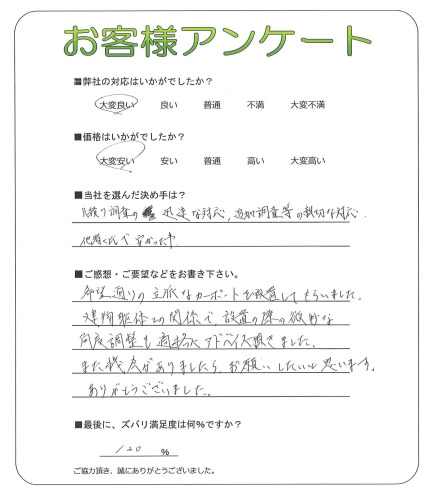 お客様アンケート
■弊社の対応はいかがでしたか？
大変良い 良い 普通 不満 大変不満
■価格はいかがでしたか？
大変安い 安い 普通 高い 大変高い
■当社を選んだ決め手は？
見積り調査の 迅速な対応, 追加調査等の親切な対応.
他者に比べ安かった事
■ご感想・ご要望などをお書き下さい。
希望通りの立派なカーポートを設置してもらいました。
建物躯体との関係で, 設置の際の微妙な
角度調整も適切にアドバイス頂きました。
また機会がありましたら, お願いしたいと思います。
ありがとうございました。
■最後に、ズバリ満足度は何%ですか？
120 %
ご協力頂き、誠にありがとうございました。